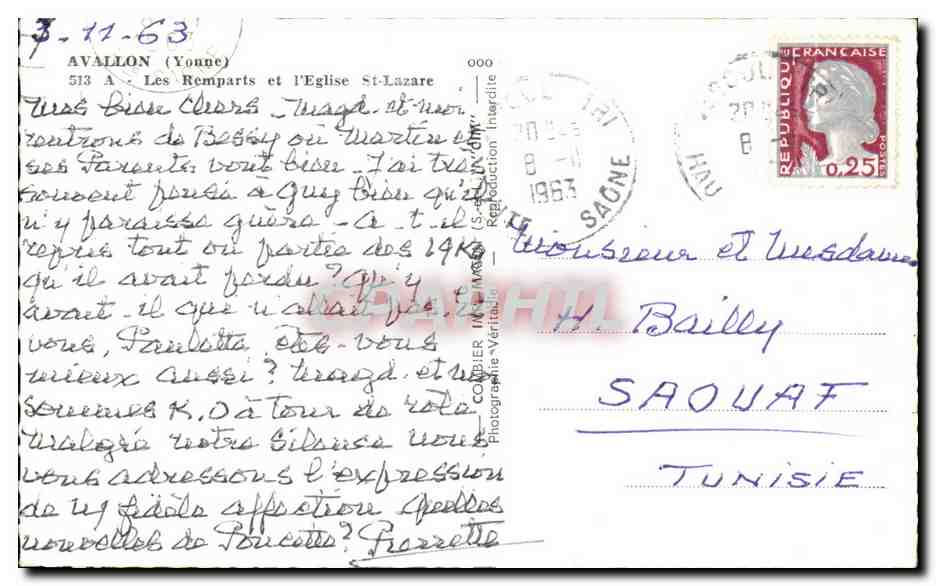 3-11-63
AVALLON (Yonne)
513 A - Les Remparts et l'Eglise St-Lazare
Mes bien chers - Magd. et moi
rentrons de Bessy où Martine et
ses Parents vont bien. J'ai très
souvent pensé à Guy bien qu'il
n'y paraisse guère - A-t-il
repris tout ou partie des 19 Ko
qu'il avait perdu? Qu'y
avait-il que n'allait pas. Et
vous, Paulette, êtes-vous
mieux aussi? Magd. et moi
sommes K.O à tour de role
Malgré notre silence nous
vous adressons l'expression
de n/ fidèle affection Quelles
nouvelles de Poucette? Pierrette
COMBIER IMP. MACON (S.-et-L.) "CIM"
Photographie Véritable - Reproduction Interdite
TRI
8 -11
1963
SAÔNE
HAU
8
REPUBLIQUE FRANCAISE
POSTES
0,25
Monsieur et Mesdames
H. Bailly
SAOUAF
TUNISIE
CPAPHIL